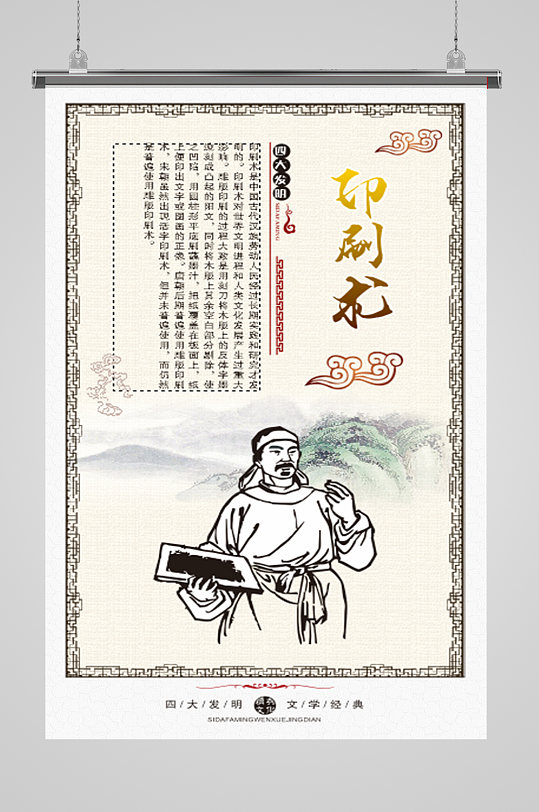 印刷术
四大发明
SIDAFAMING
印刷术是中国古代汉族劳动人民经过长期实践和研究才发
明的。印刷术对世界文明进程和人类文化发展产生过重大
影响。雕版印刷的过程大致是用刻刀将木版上的反体字墨
迹刻成凸起的阳文，同时将木版上其余空白部分剔除，使
之凹陷。用圆柱形平底刷蘸墨汁，把纸覆盖在板面上，纸
上便印出文字或图画的正像。唐朝后期普遍使用雕版印刷
术，宋朝虽然出现活字印刷术，但并未普遍使用，而仍然
是普遍使用雕版印刷术。
四/大/发/明 文/学/经/典
SIDAFAMINGWENXUEJINGDIAN